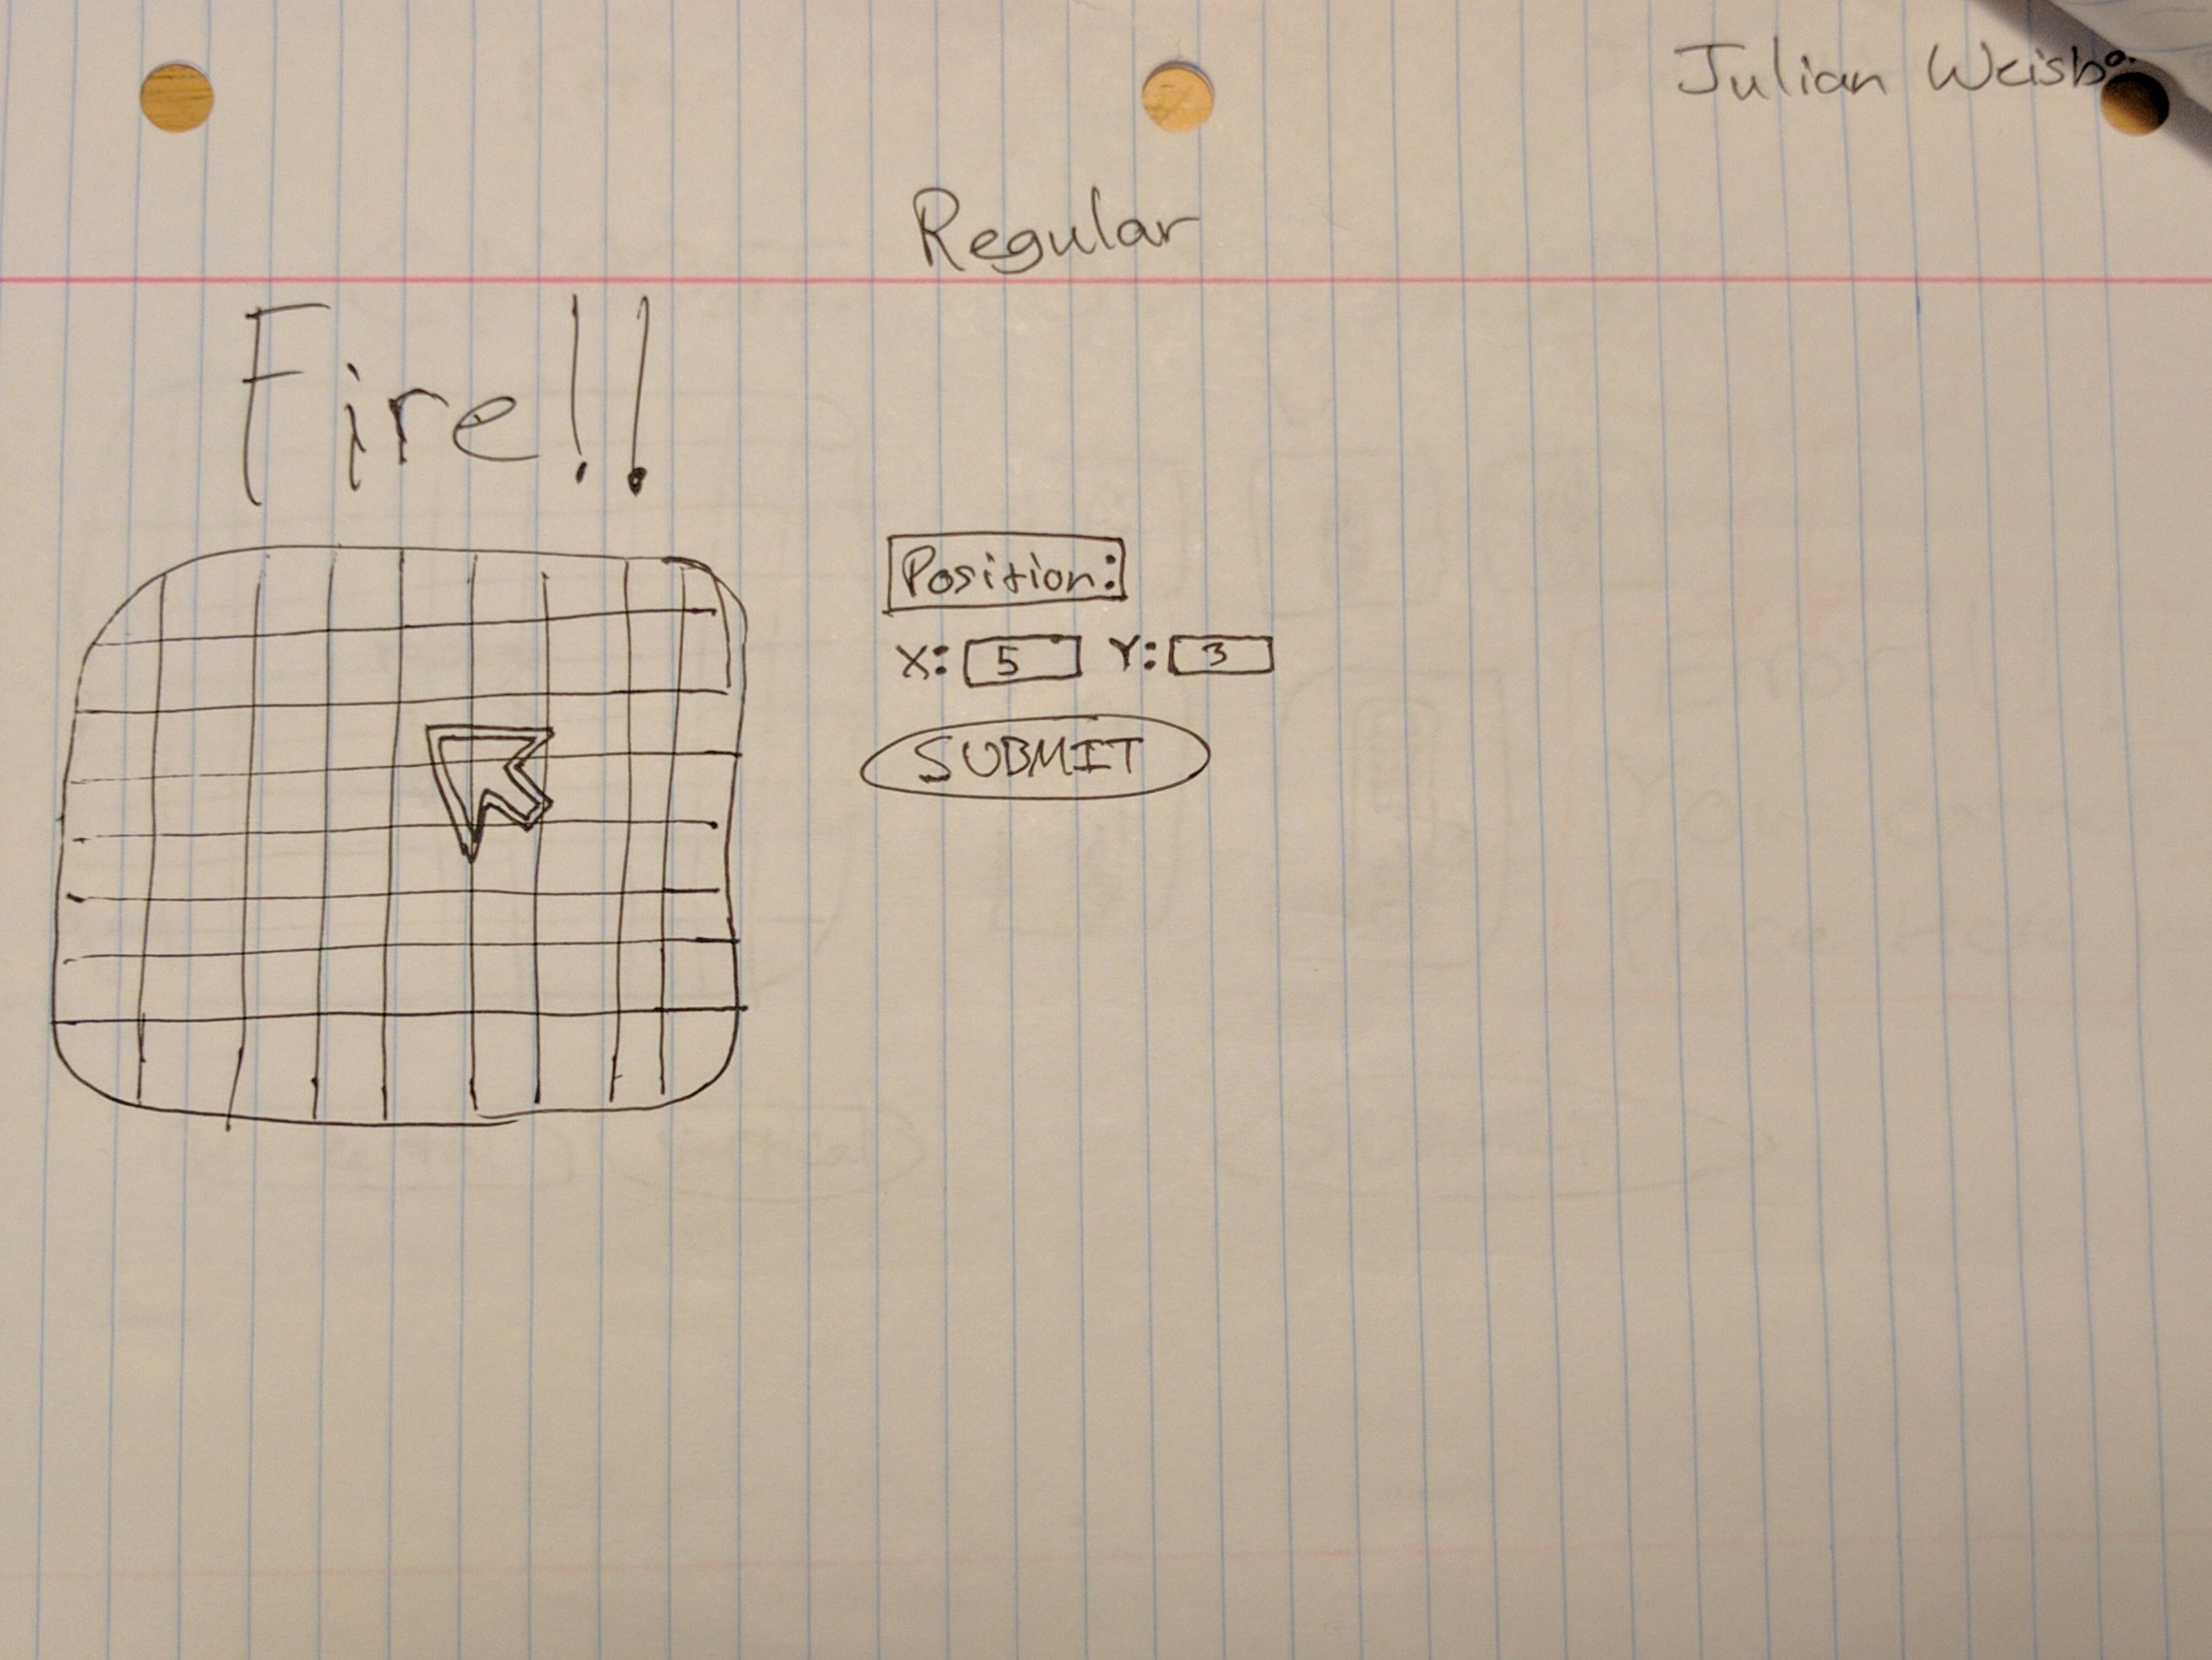 Julian
Regular
Fire!!
Position:
X: 5 Y: 3
SUBMIT